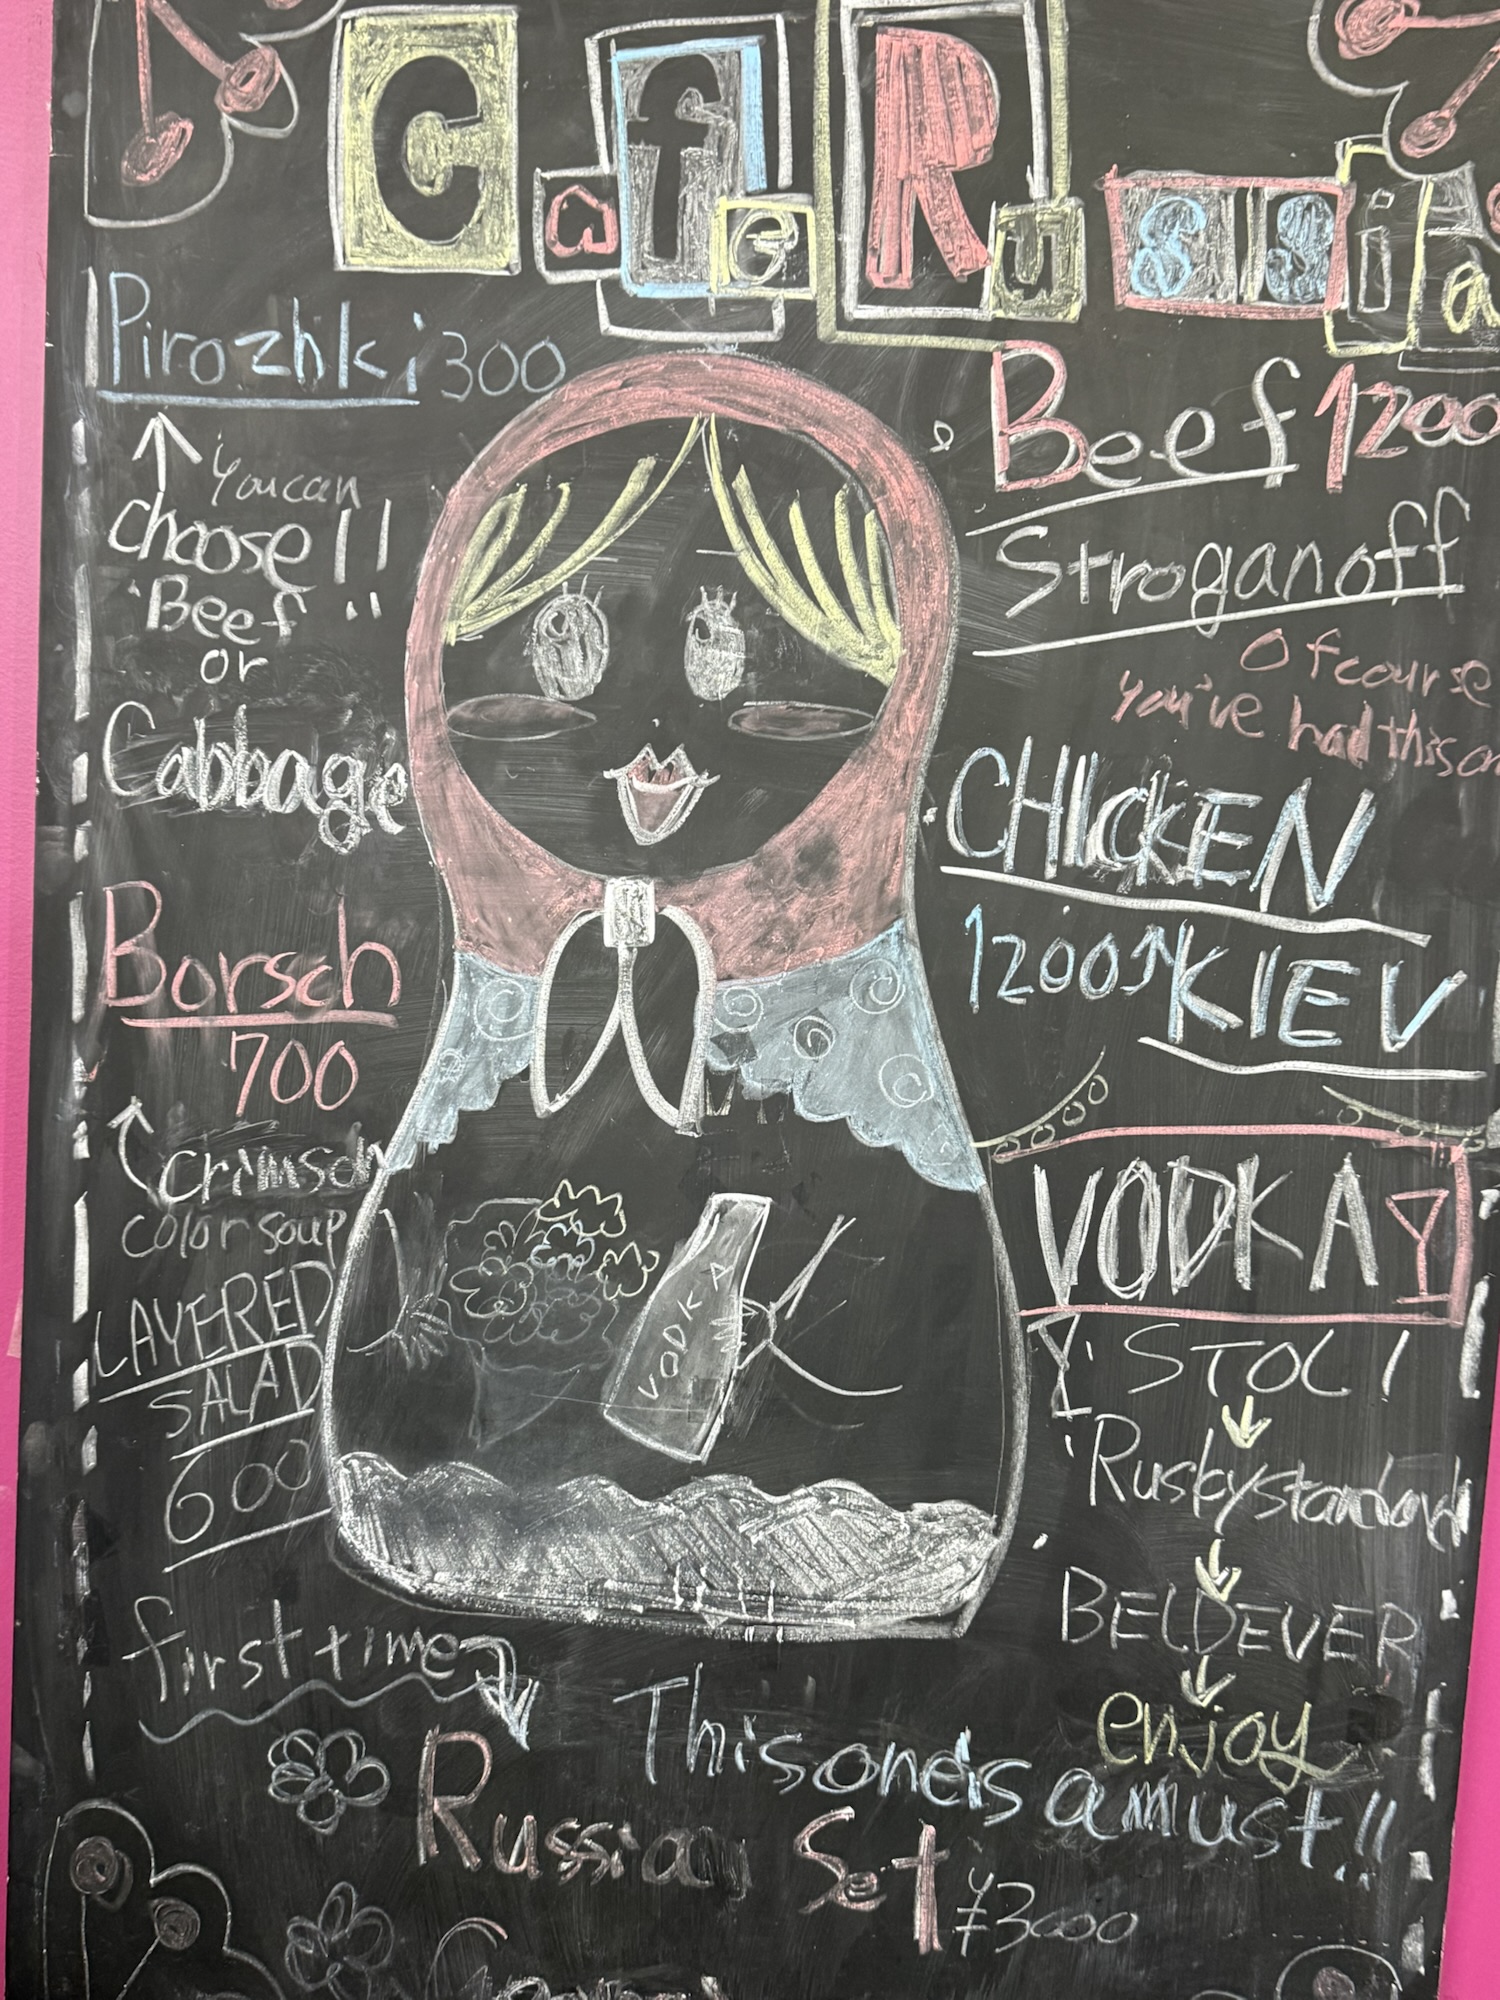 Cafe Russia
Pirozhki 300
↑ you can
choose!!
Beef
or
Cabbage
Borsch
700
↑ crimson
color soup
LAYERED
SALAD
600
first time
Beef 1200
Stroganoff
Of course
you've had this
CHICKEN
1200 KIEV
VODKA
VODKA
STOLI
↓
Rusky standard
↓
BELDEVER
↓
enjoy
This one is a must!!
Russian Set ¥3000